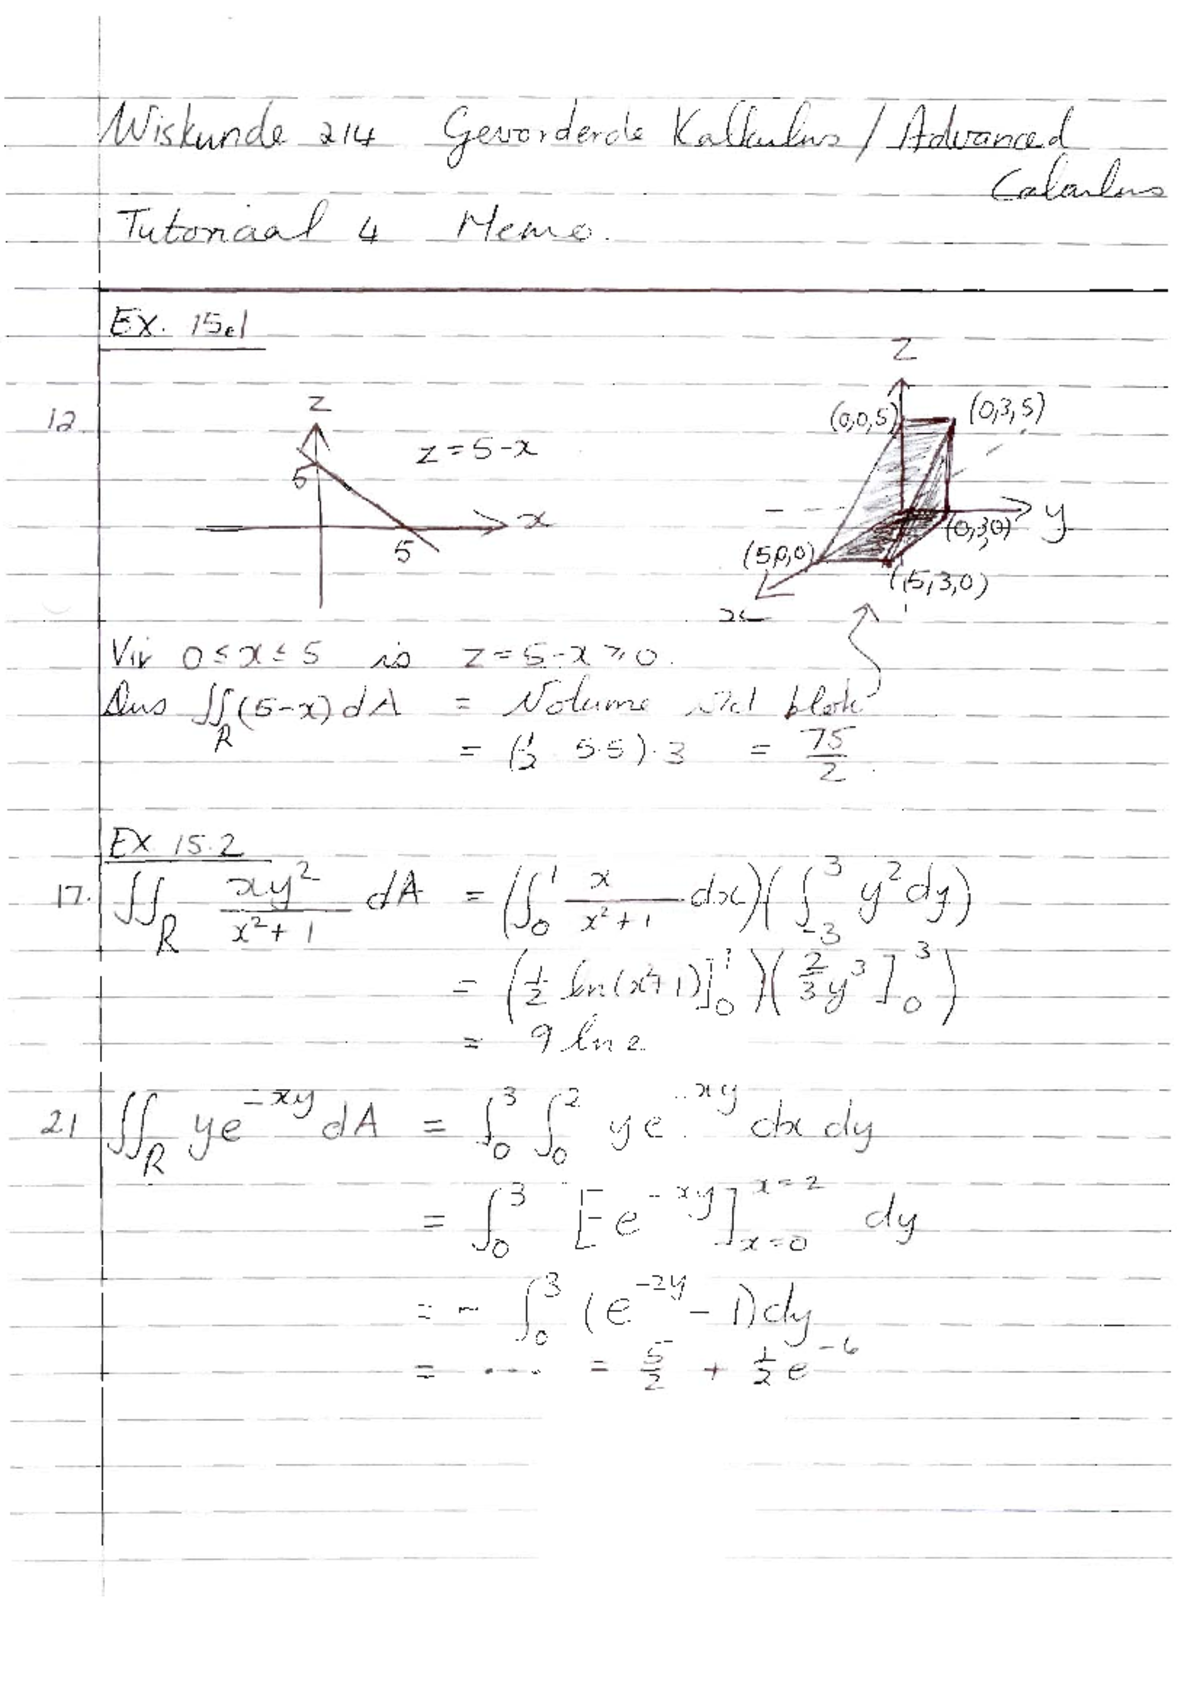 Wiskunde 214 Gevorderde Kalkulus / Advanced
Calculus
Tutoriaal 4 Memo.
Ex. 15.1
12.
z
5
z = 5-x
x
5
z
(0,0,5)
(0,3,5)
y
(0,3,0)
(5,0,0)
(5,3,0)
x
Vir 0 ≤ x ≤ 5 is z = 5-x ≥ 0.
Dus ∬_R (5-x) dA = Volume v/d blok
= (1/2 5·5)·3 = 75/2.
Ex 15.2
17. ∬_R xy²/(x²+1) dA = (∫_0^1 x/(x²+1) dx)(∫_{-3}^3 y² dy)
= (1/2 ln(x²+1)]_0^1)(2/3 y³]_0^3)
= 9 ln 2
21 ∬_R ye^{-xy} dA = ∫_0^3 ∫_0^2 ye^{-xy} dx dy
= ∫_0^3 [-e^{-xy}]_{x=0}^{x=2} dy
= - ∫_0^3 (e^{-2y} - 1) dy
= .... = 5/2 + 1/2 e^{-6}